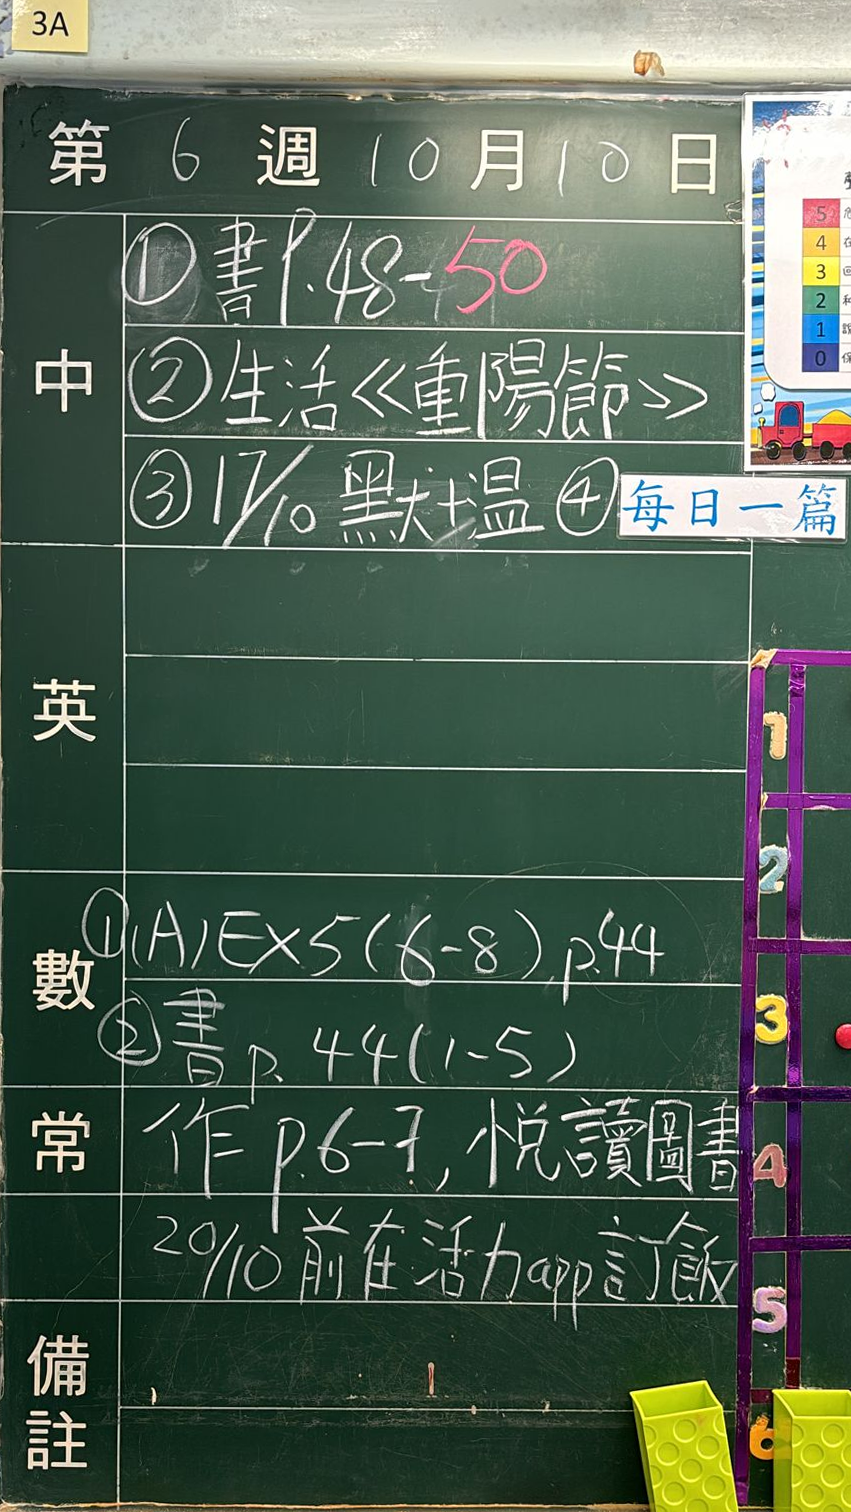 3A
第 6 週 10 月 10 日
中
①書P.48-50
②生活《重陽節》
③17/10默溫④每日一篇
英
數
①(A)EX5(6-8),p.44
②書p.44(1-5)
常
作p.6-7,悅讀圖書
20/10前在活力app訂飯
備註
5
4
3
2
1
0
1
2
3
4
5
6